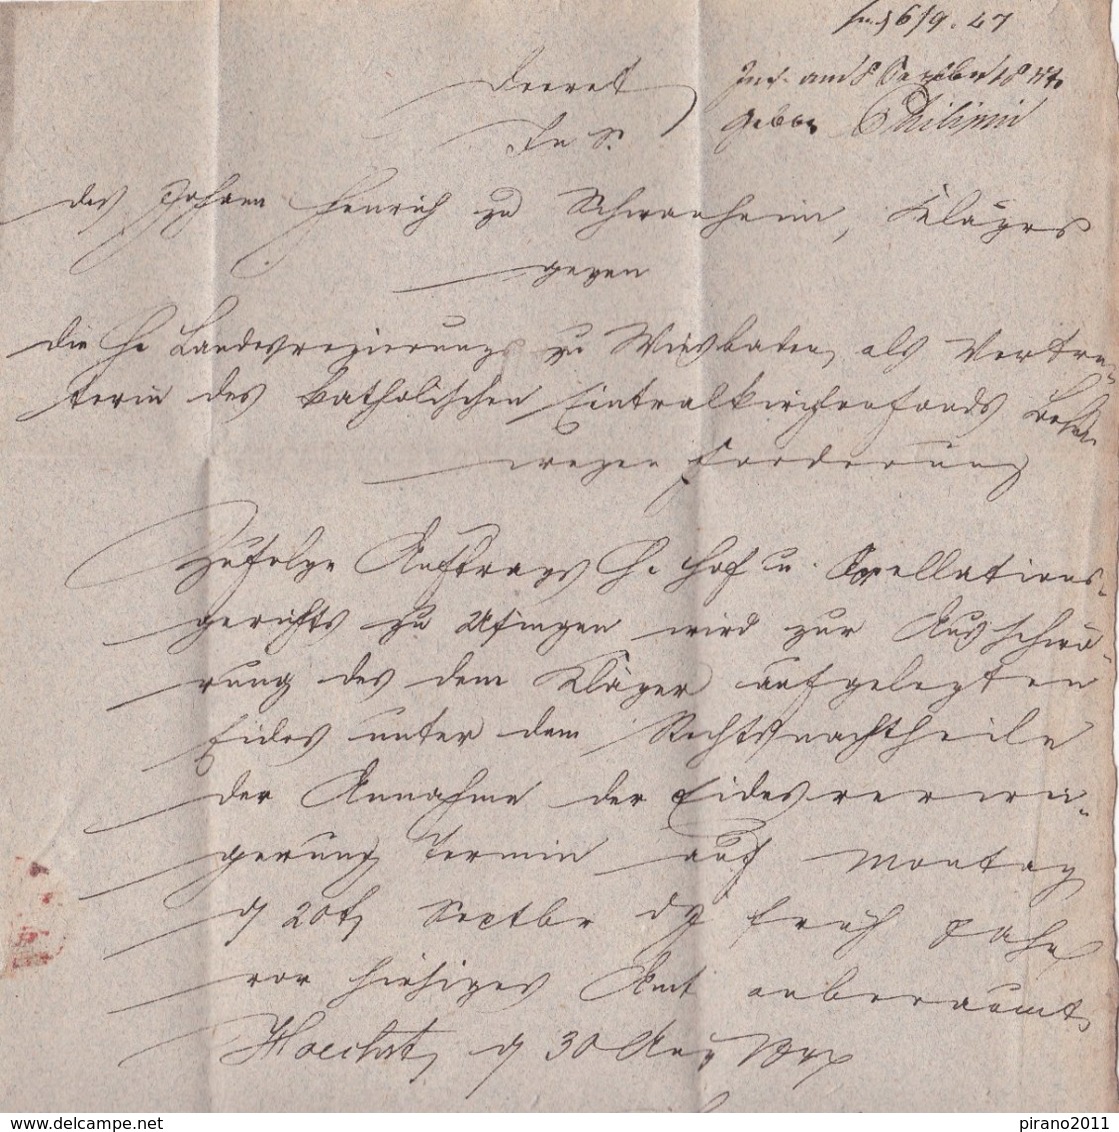 6/9. 47
Decret
Int. am 8 September 1847
In S.
Philippi
des Johann Henrich zu Schwanheim, Klägers
gegen
die H. Landesregierung zu Wiesbaden, als Vertre-
terin des katholischen Centralkirchenfonds
wegen Forderung
Zufolge Auftrags H. Hof u. Appellations-
gerichts zu Usingen wird zur Ausschwö-
rung des dem Kläger aufgelegten
Eides unter dem Rechtsnachtheile
der Annahme der Eidesverwei-
gerung Termin auf Montag
d 20t Septbr dJ früh
vor hiesiges Amt anberaumt
Hoechst, d 30 Aug 1847
pirano2011